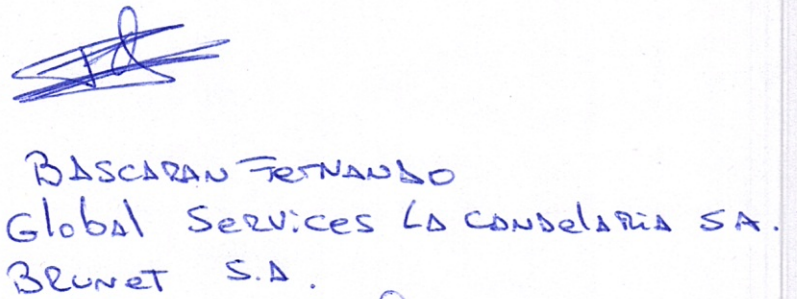 BASCARAN FERNANDO
Global Services LA CANDelARiA SA.
BRUNET S.A.